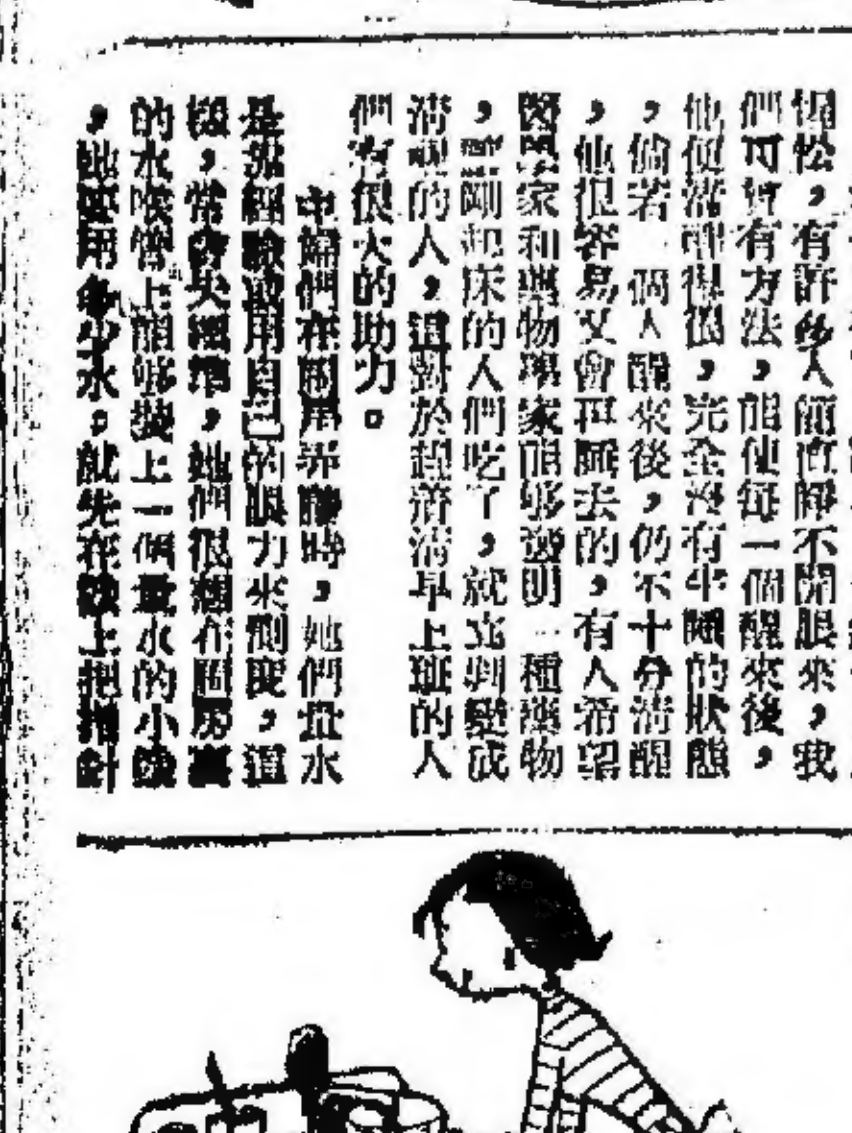 惺忪，有許多人簡直睜不開眼來，我
們可有方法，能使每一個醒來後，
他便清醒得很，完全沒有半睡的狀態
，倘若一個人醒來後，仍不十分清醒
，他很容易又會再睡去的，有人希望
醫學家和藥物學家能够發明一種藥物
，剛起床的人們吃了，就立刻變成
清醒的人，這對於趕着清早上班的人
們有很大的助力。
主婦們在廚房弄膳時，她們量水
是憑經驗或用自己的眼力來測度，這
樣，常會失準，她們很想在廚房裏
的水喉管上能够裝上一個量水的小錶
，她要用多少水，就先在錶上把指針